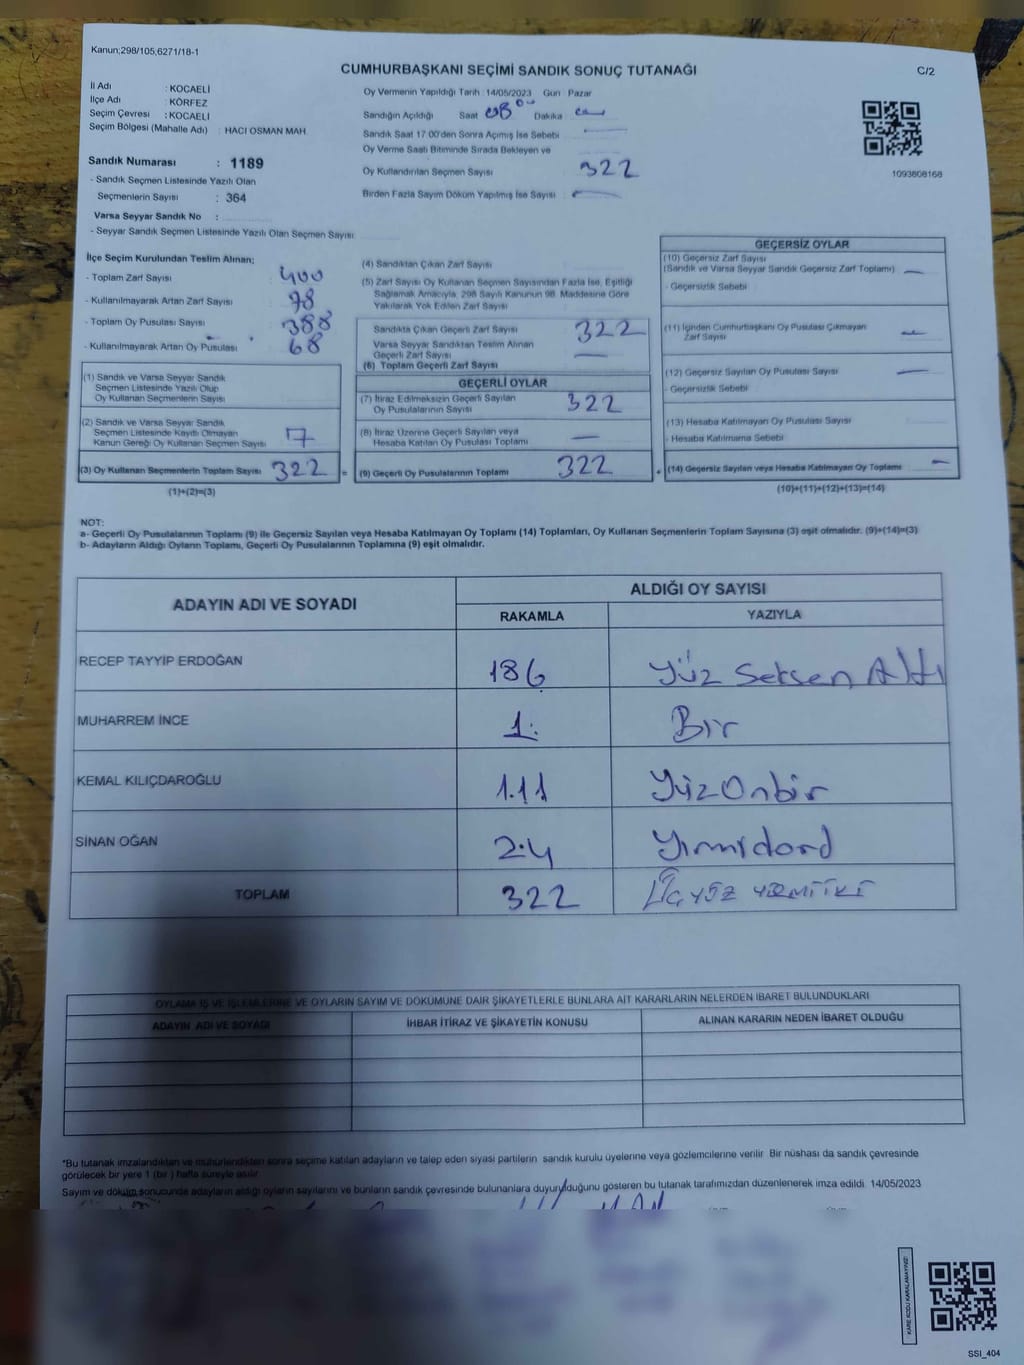 Kanun;298/105,6271/18-1
CUMHURBAŞKANI SEÇİMİ SANDIK SONUÇ TUTANAĞI
C/2
İl Adı : KOCAELİ
İlçe Adı : KÖRFEZ
Seçim Çevresi : KOCAELİ
Seçim Bölgesi (Mahalle Adı) : HACI OSMAN MAH.
Sandık Numarası : 1189
- Sandık Seçmen Listesinde Yazılı Olan
Seçmenlerin Sayısı : 364
Varsa Seyyar Sandık No :
- Seyyar Sandık Seçmen Listesinde Yazılı Olan Seçmen Sayısı
Oy Vermenin Yapıldığı Tarih : 14/05/2023 Gün Pazar
Sandığın Açıldığı Saat 08 00 Dakika
Sandık Saat 17:00'den Sonra Açılmış İse Sebebi
Oy Verme Saati Bitiminde Sırada Bekleyen ve
Oy Kullandırılan Seçmen Sayısı 322
Birden Fazla Sayım Döküm Yapılmış İse Sayısı
1093808168
İlçe Seçim Kurulundan Teslim Alınan;
- Toplam Zarf Sayısı 400
- Kullanılmayarak Artan Zarf Sayısı 78
- Toplam Oy Pusulası Sayısı 388
- Kullanılmayarak Artan Oy Pusulası 68
(1) Sandık ve Varsa Seyyar Sandık
Seçmen Listesinde Yazılı Olup
Oy Kullanan Seçmenlerin Sayısı
(2) Sandık ve Varsa Seyyar Sandık
Seçmen Listesinde Kayıtlı Olmayan
Kanun Gereği Oy Kullanan Seçmen Sayısı 7
(3) Oy Kullanan Seçmenlerin Toplam Sayısı 322 =
(1)+(2)=(3)
(4) Sandıktan Çıkan Zarf Sayısı
(5) Zarf Sayısı Oy Kullanan Seçmen Sayısından Fazla İse, Eşitliği
Sağlamak Amacıyla, 298 Sayılı Kanunun 98. Maddesine Göre
Yakılarak Yok Edilen Zarf Sayısı
Sandıkta Çıkan Geçerli Zarf Sayısı 322
Varsa Seyyar Sandıktan Teslim Alınan
Geçerli Zarf Sayısı
(6) Toplam Geçerli Zarf Sayısı
GEÇERLİ OYLAR
(7) İtiraz Edilmeksizin Geçerli Sayılan
Oy Pusulalarının Sayısı 322
(8) İtiraz Üzerine Geçerli Sayılan veya
Hesaba Katılan Oy Pusulası Toplamı
(9) Geçerli Oy Pusulalarının Toplamı 322 +
GEÇERSİZ OYLAR
(10) Geçersiz Zarf Sayısı
(Sandık ve Varsa Seyyar Sandık Geçersiz Zarf Toplamı)
- Geçersizlik Sebebi
(11) İçinden Cumhurbaşkanı Oy Pusulası Çıkmayan
Zarf Sayısı
(12) Geçersiz Sayılan Oy Pusulası Sayısı
- Geçersizlik Sebebi
(13) Hesaba Katılmayan Oy Pusulası Sayısı
- Hesaba Katılmama Sebebi
(14) Geçersiz Sayılan veya Hesaba Katılmayan Oy Toplamı
(10)+(11)+(12)+(13)=(14)
NOT:
a- Geçerli Oy Pusulalarının Toplamı (9) ile Geçersiz Sayılan veya Hesaba Katılmayan Oy Toplamı (14) Toplamları, Oy Kullanan Seçmenlerin Toplam Sayısına (3) eşit olmalıdır. (9)+(14)=(3)
b- Adayların Aldığı Oyların Toplamı, Geçerli Oy Pusulalarının Toplamına (9) eşit olmalıdır.
ADAYIN ADI VE SOYADI
ALDIĞI OY SAYISI
RAKAMLA YAZIYLA
RECEP TAYYİP ERDOĞAN 186 Yüz Seksen Altı
MUHARREM İNCE 1. Bir
KEMAL KILIÇDAROĞLU 111 YüzOnbir
SİNAN OĞAN 24 Yirmidord
TOPLAM 322 ÜÇYÜZ YİRMİİKİ
OYLAMA İŞ VE İŞLEMLERİNE VE OYLARIN SAYIM VE DÖKÜMÜNE DAİR ŞİKAYETLERLE BUNLARA AİT KARARLARIN NELERDEN İBARET BULUNDUKLARI
ADAYIN ADI VE SOYADI İHBAR İTİRAZ VE ŞİKAYETİN KONUSU ALINAN KARARIN NEDEN İBARET OLDUĞU
*Bu tutanak imzalandıktan ve mühürlendikten sonra seçime katılan adayların ve talep eden siyasi partilerin sandık kurulu üyelerine veya gözlemcilerine verilir. Bir nüshası da sandık çevresinde
görülecek bir yere 1 (bir) hafta süreyle asılır.
Sayım ve döküm sonucunda adayların aldığı oyların sayılarını ve bunların sandık çevresinde bulunanlara duyurulduğunu gösteren bu tutanak tarafımızdan düzenlenerek imza edildi. 14/05/2023
KARE KODU KARALAMAYINIZ!
SSI_404